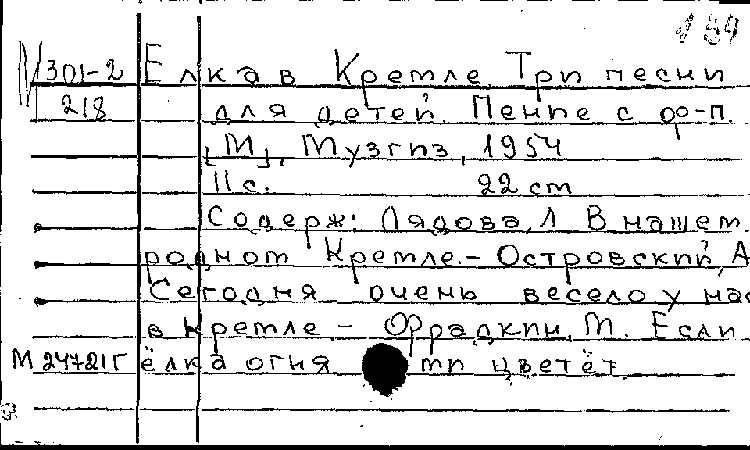 159
М 301-2 Елка в Кремле. Три песни
218 для детей. Пение с ф-п.
[М], Музгиз, 1954
11 с. 22 cm
Содерж: Лядова, Л. В нашем
родном Кремле. - Островский, А.
Сегодня очень весело у нас
в Кремле - Фрадкин, М. Если
М 24721г ёлка огня ми цветёт